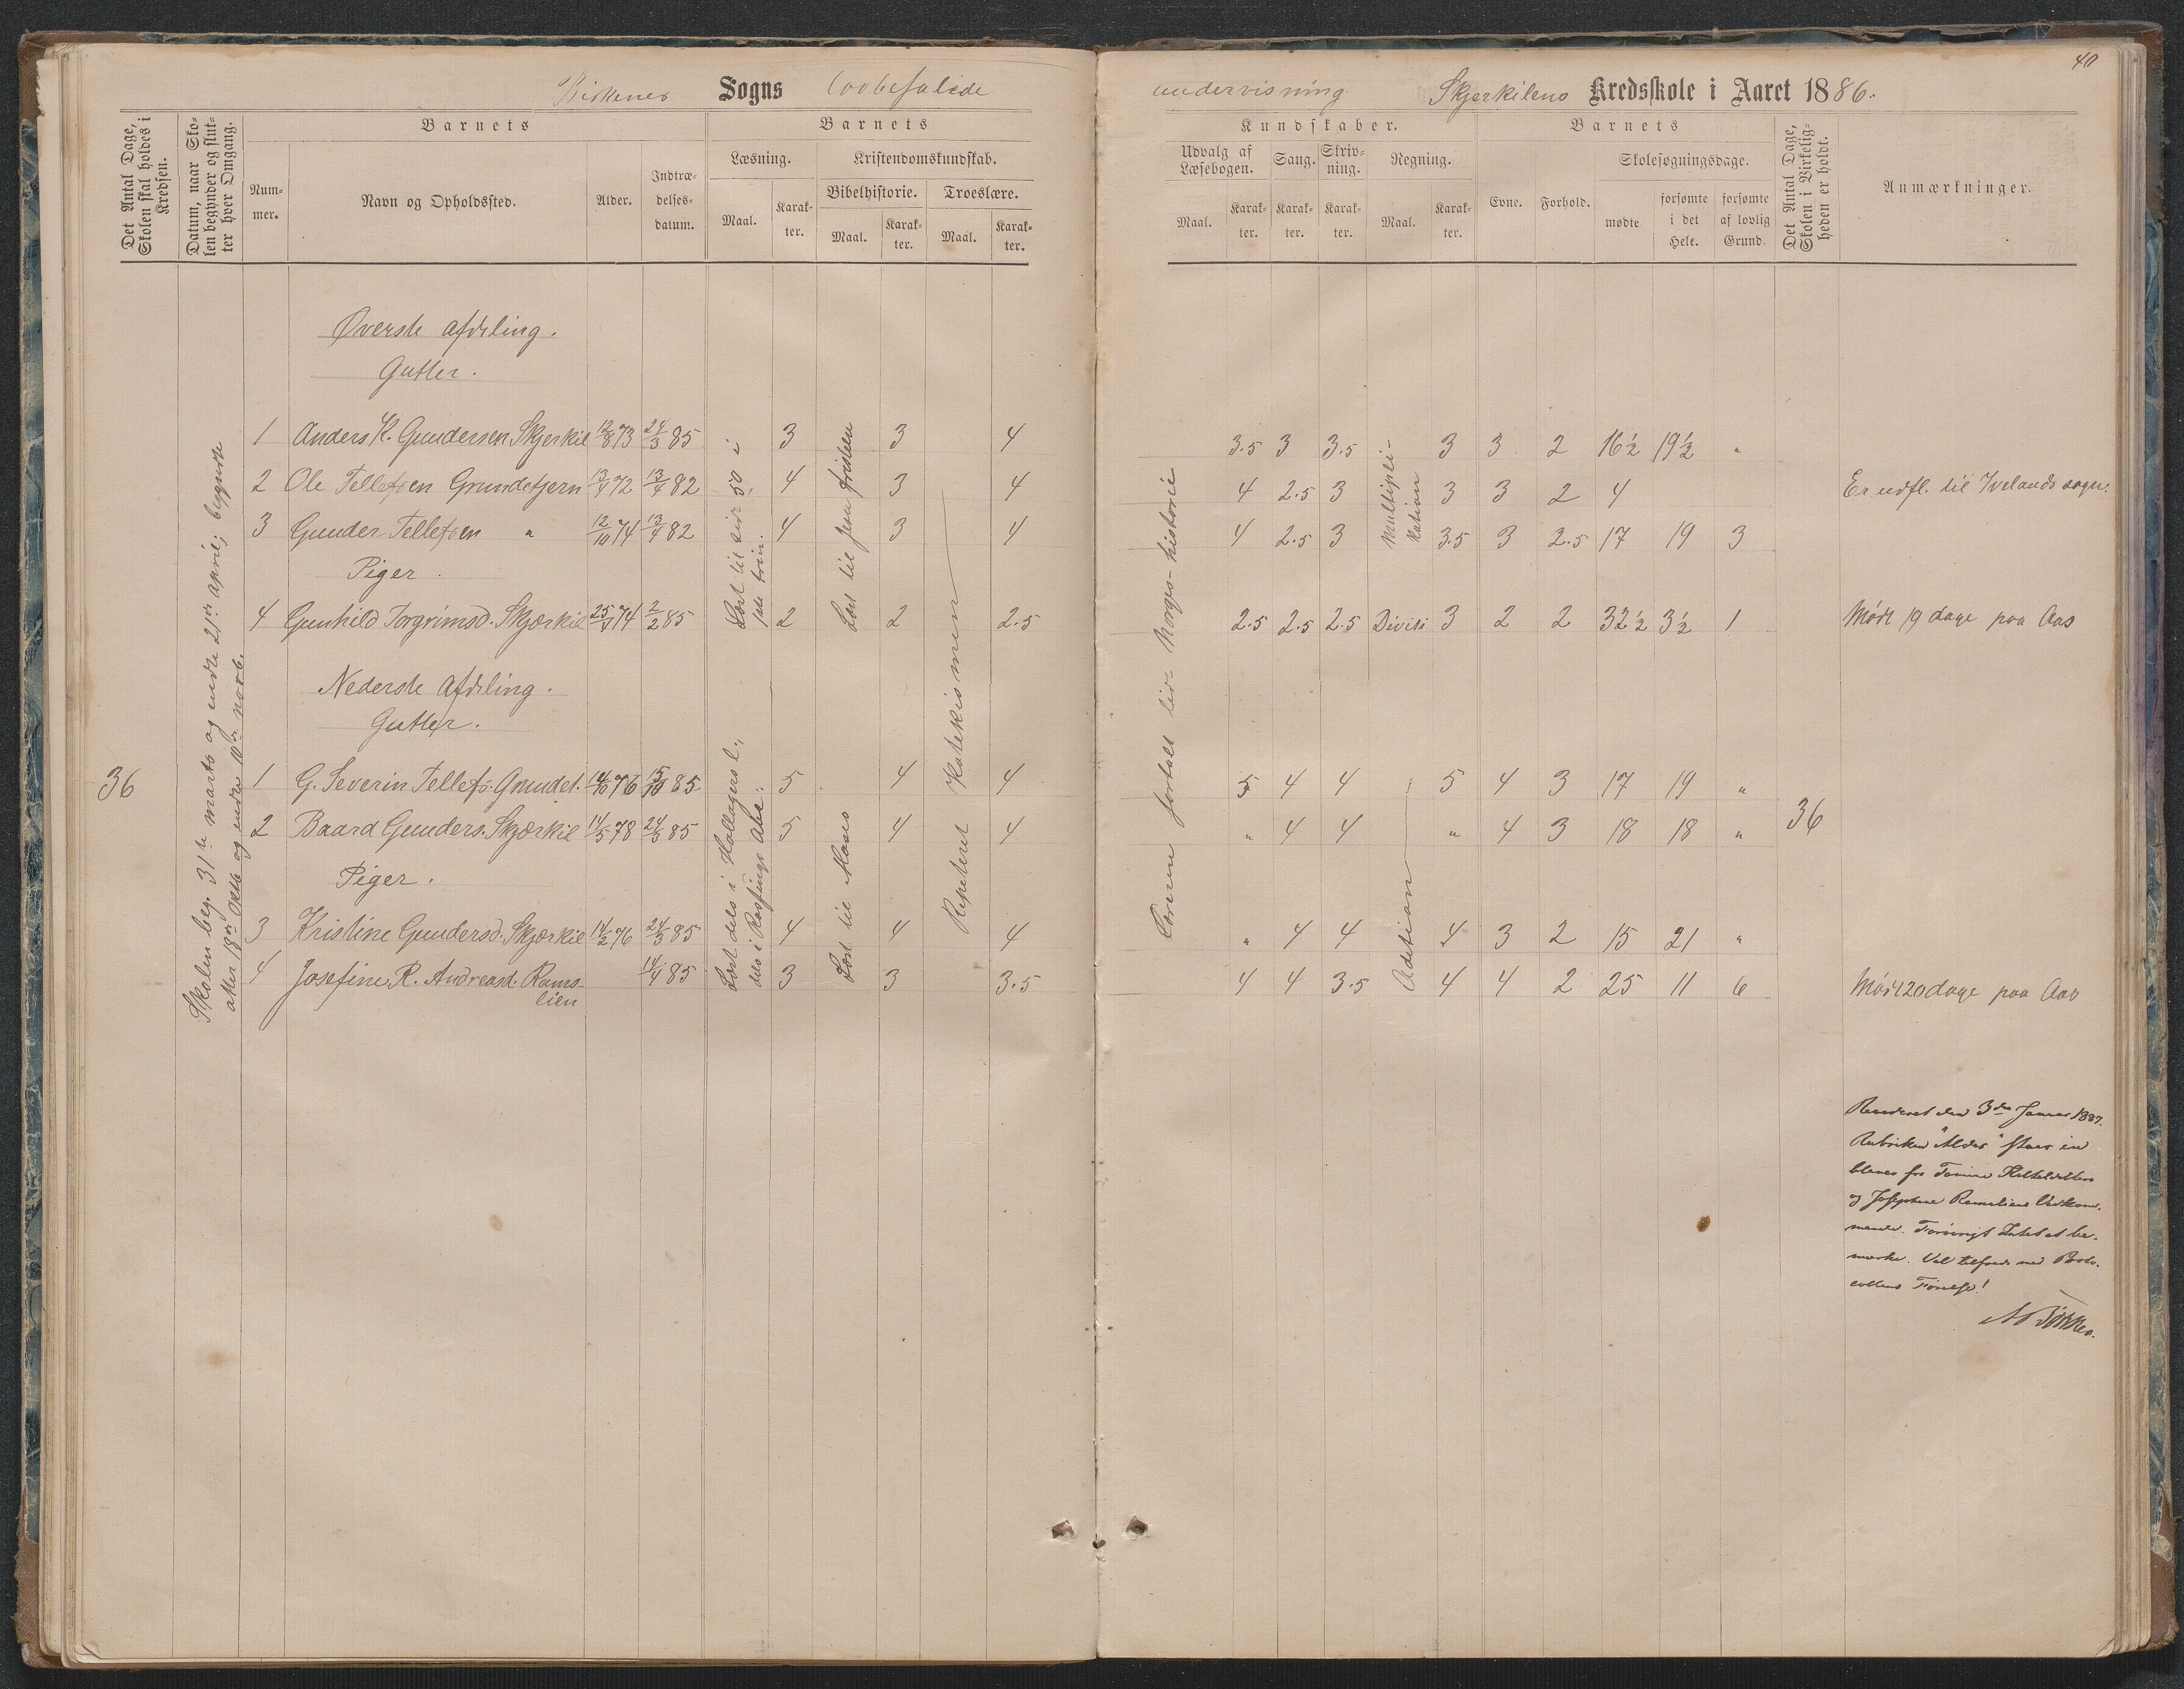 40
Birkenes Sogns lovbefalede undervisning Skjerkilens Kredsskole i Aaret 1886.
Det Antal Dage, Skolen skal holdes i Kredsen.
Datum, naar Skolen begynder og slutter hver Omgang.
Barnets
Nummer.
Navn og Opholdssted.
Alder.
Indtrædelsesdatum.
Barnets
Læsning.
Maal.
Karakter.
Kristendomskundskab.
Bibelhistorie.
Maal.
Karakter.
Troeslære.
Maal.
Karakter.
Kundskaber.
Udvalg af Læsebogen.
Maal.
Karakter.
Sang.
Karakter.
Skrivning.
Karakter.
Regning.
Maal.
Karakter.
Barnets
Evne.
Forhold.
Skolesøgningsdage.
mødte
forsømte i det Hele.
forsømte af lovlig Grund.
Det Antal Dage, Skolen i Virkeligheden er holdt.
Anmærkninger.
Skolen beg. 31te marts og endte 21de april; begyndte
atter 18de Oktb og endte 10de novb.
Øverste afdeling.
Gutter.
1 Anders K. Gundersen Skjerkil 12/8 73 24/3 85 3 3 4 3.5 3 3.5 3 3 2 16½ 19½ "
2 Ole Tellefsen Grundetjern 13/4 72 13/4 82 4 3 4 4 2.5 3 3 3 2 4 Er udfl. til Ivelands sogn.
3 Gunder Tellefsen " 12/10 74 13/4 82 4 3 4 4 2.5 3 3.5 3 2.5 17 19 3
Piger.
4 Gunhild Torgrimsd. Skjærkil 25/4 74 2/2 85 2 2 2.5 2.5 2.5 2.5 Divisi 3 2 2 32½ 3½ 1 Mødt 19 dage paa Aas
Læst til side 50 i
1ste trin.
Læst til Jesu fristen
Repeteret Katekismen
Læreren fortalt lidt Norges-historie
Multipli-
kation
Nederste Afdeling.
Gutter.
36
1 G. Severin Tellefs. Grundet. 14/10 76 15/10 85 5 4 4 5 4 4 5 4 3 17 19 "
2 Baard Gunders. Skjærkil 14/5 78 24/3 85 5 4 4 " 4 4 " 4 3 18 18 " 36
Piger.
3 Kristine Gundersd. Skjærkil 14/2 76 24/3 85 4 4 4 " 4 4 4 3 2 15 21 "
4 Josefine R. Andreasd. Rams-
lien 14/4 85 3 3 3.5 4 4 3.5 4 4 2 25 11 6 Mødt 20 dage paa Aas
Læst dels i
dels i
Læst til Moses
Adetion
den 3die Januar 1887.
Rubriken "Alder" staar en
og Josephine Ramsliens Vedkom-
mende. Forøvrigt Intet at be-
mærke. Vel tilfreds med Proto-
collens Førelse!